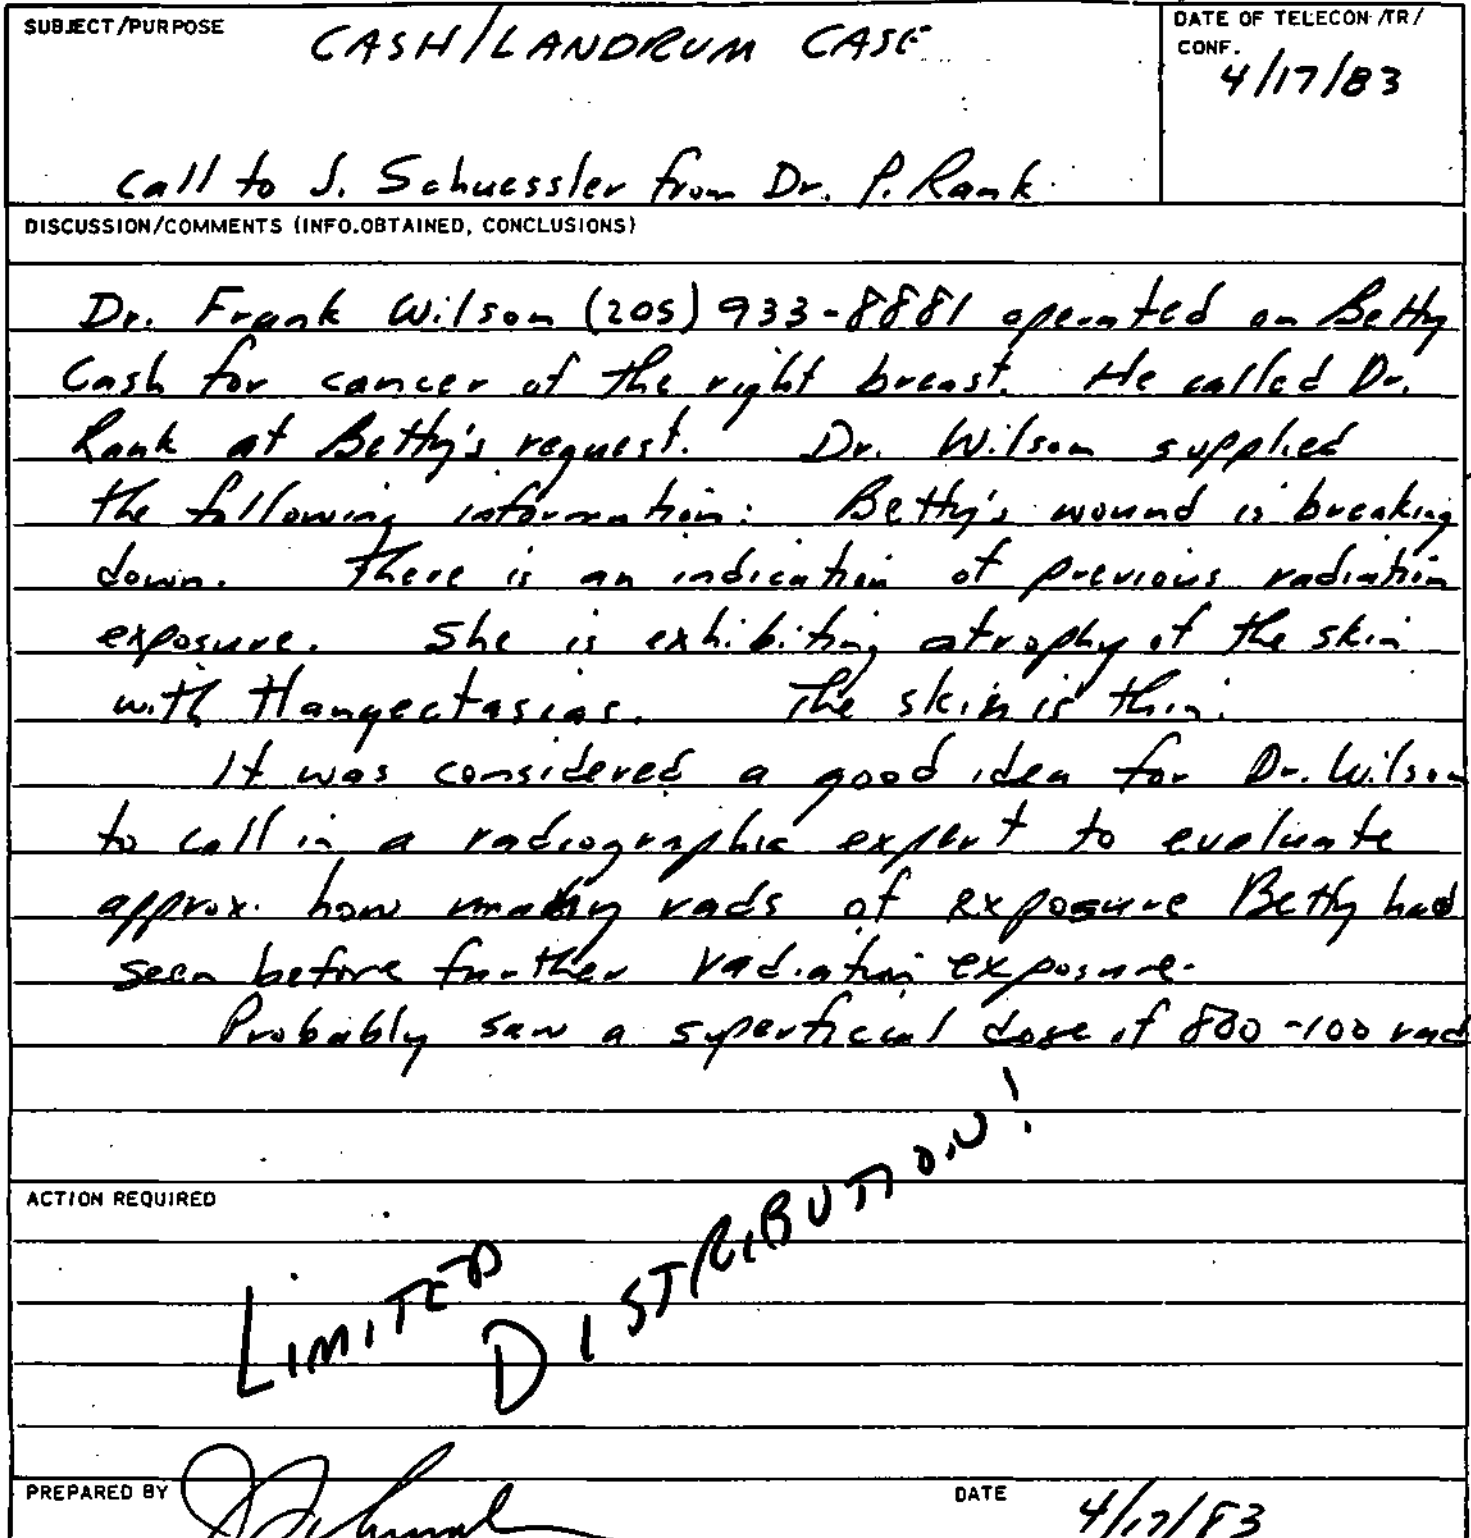 SUBJECT/PURPOSE
CASH/LANDRUM CASE
DATE OF TELECON /TR/
CONF.
4/17/83
Call to J. Schuessler from Dr. P. Rank
DISCUSSION/COMMENTS (INFO.OBTAINED, CONCLUSIONS)
Dr. Frank Wilson (205) 933-8881 operated on Betty
Cash for cancer of the right breast. He called Dr.
Rank at Betty's request. Dr. Wilson supplied
the following information: Betty's wound is breaking
down. There is an indication of previous radiation
exposure. She is exhibiting atrophy of the skin
with tlangectasias. The skin is thin.
It was considered a good idea for Dr. Wilson
to call in a radiographic expert to evaluate
approx. how many rads of exposure Betty had
seen before further radiation exposure.
Probably saw a superficial dose of 800-100 rad
ACTION REQUIRED
LIMITED
DISTRIBUTION!
PREPARED BY
DATE
4/17/83